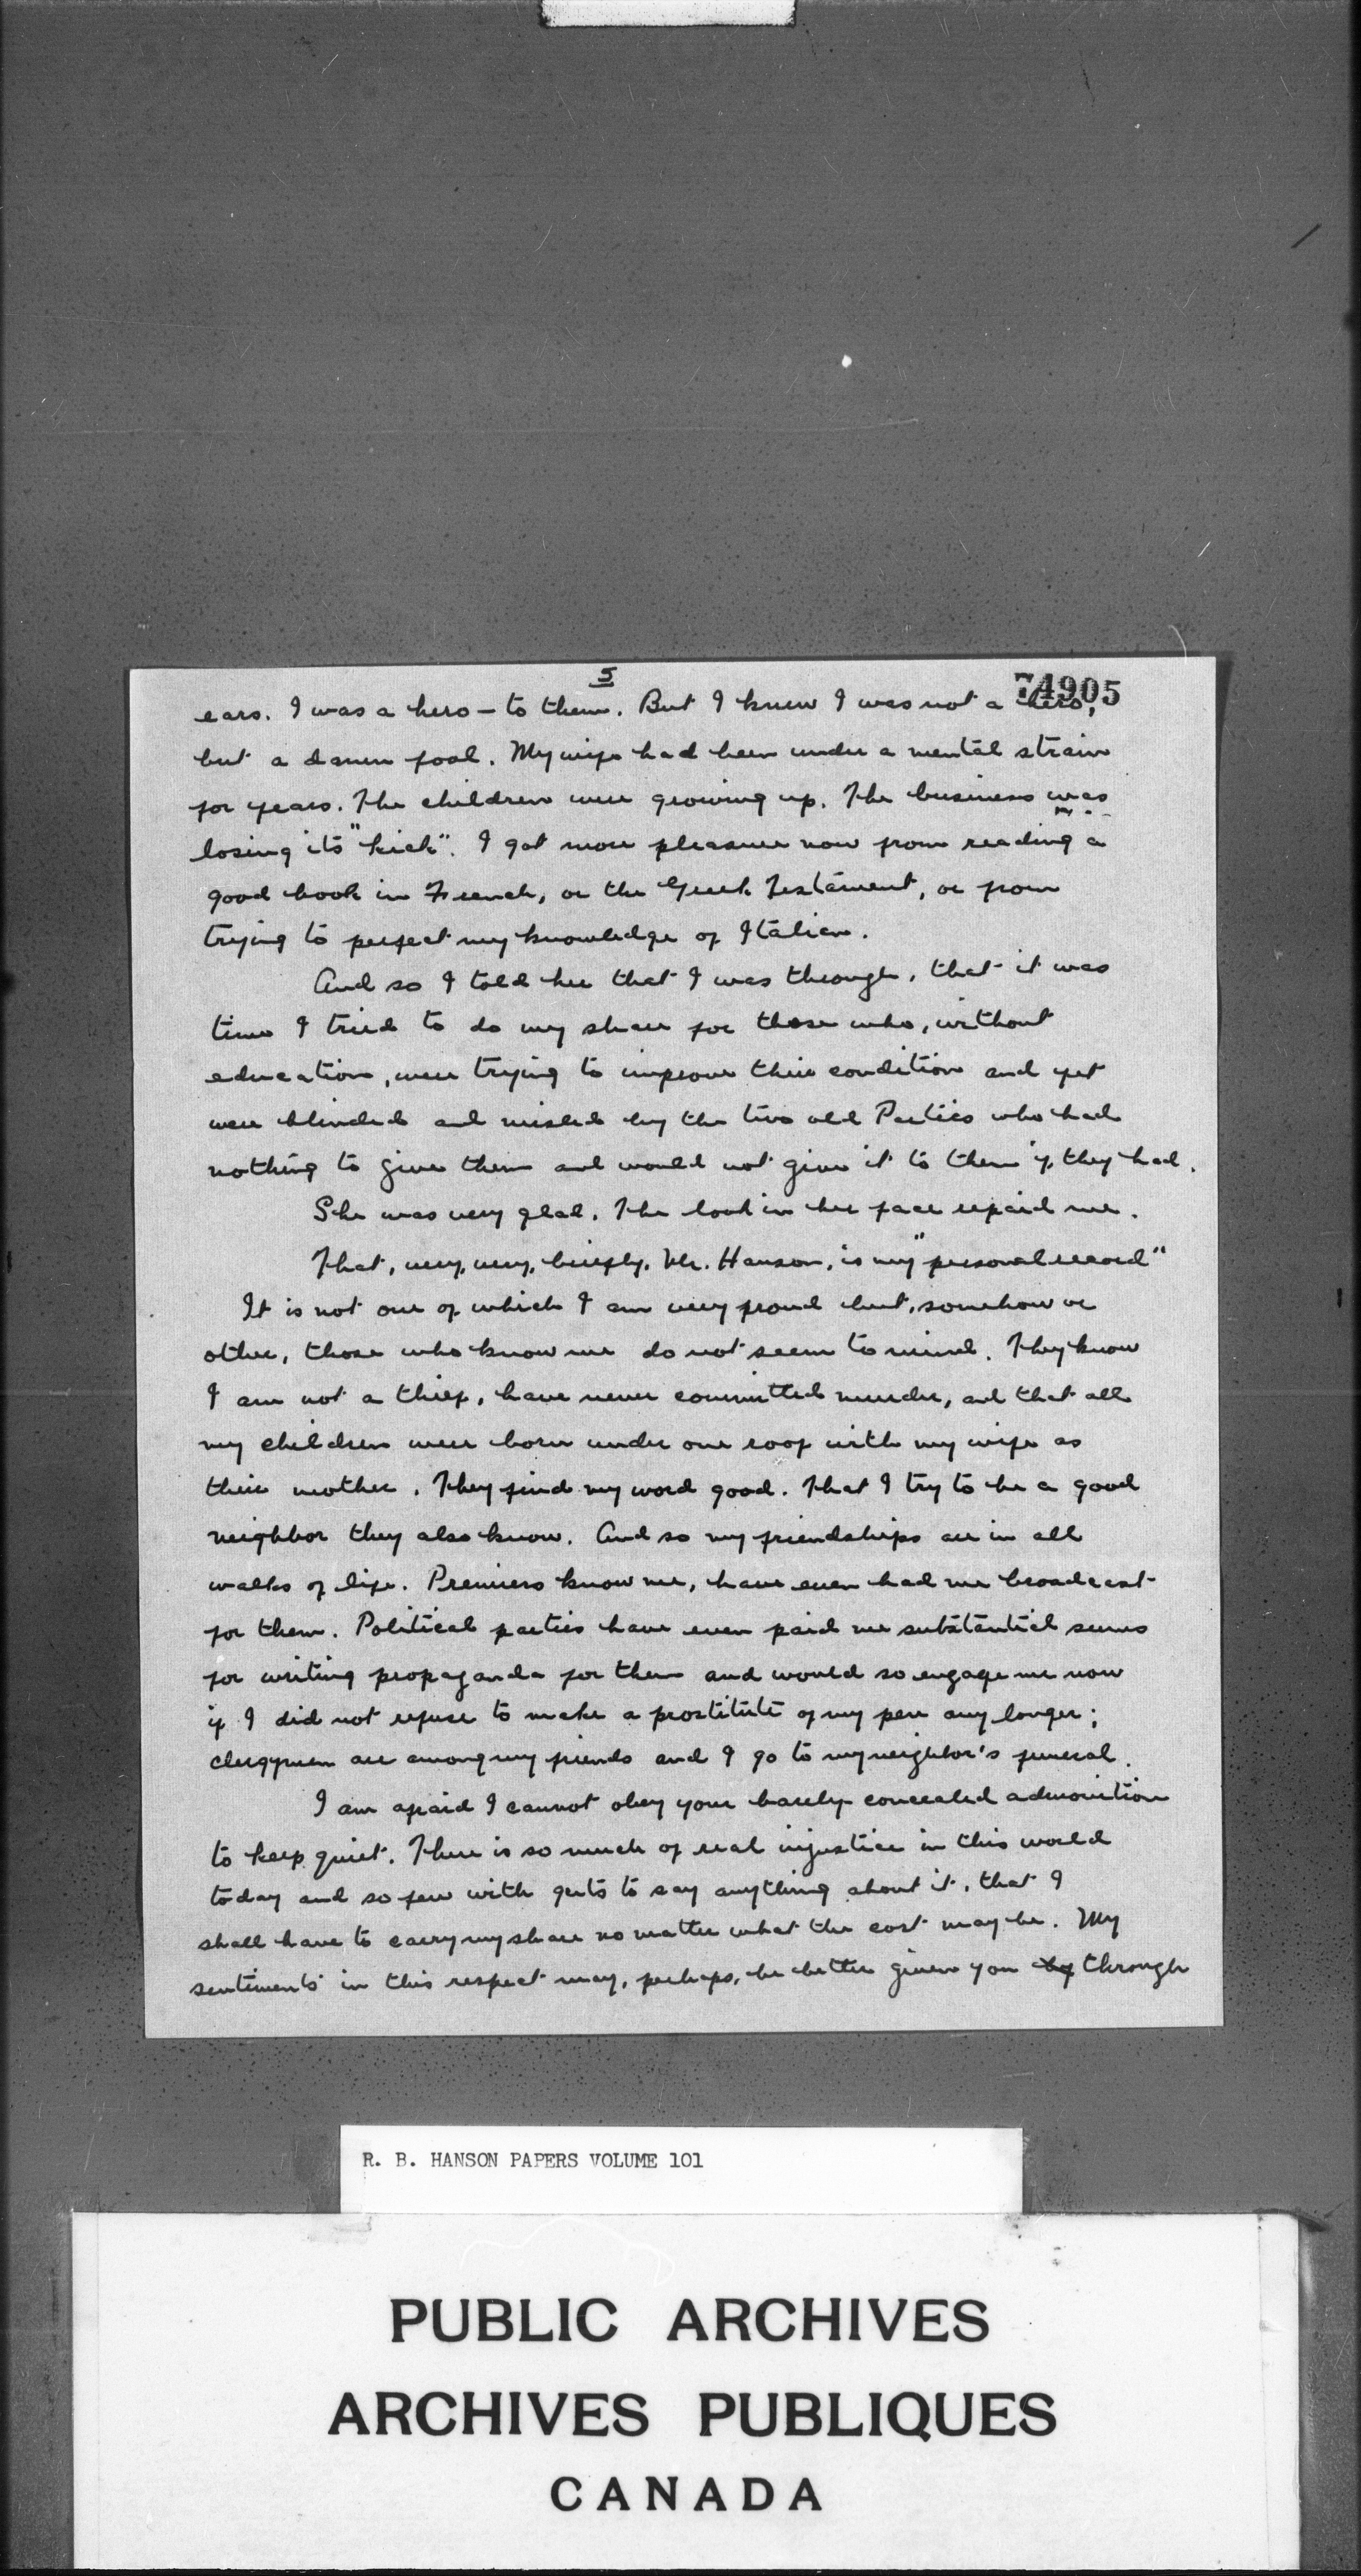 5
74905
ears. I was a hero — to them. But I knew I was not a hero,
but a damn fool. My wife had been under a mental strain
for years. The children were growing up. The business was
losing its "kick". I got more pleasure now from reading a
good book in French, or the Greek Testament, or from
trying to perfect my knowledge of Italian.
And so I told her that I was through, that it was
time I tried to do my share for those who, without
education, were trying to improve their condition and yet
were blinded and misled by the two old Parties who had
nothing to give them and would not give it to them if they had.
She was very glad. The look in her face repaid me.
That, very, very, briefly, Mr. Hanson, is my "personal record"
It is not one of which I am very proud but, somehow or
other, those who know me do not seem to mind. They know
I am not a thief, have never committed murder, and that all
my children were born under one roof with my wife as
their mother. They find my word good. That I try to be a good
neighbor they also know. And so my friendships are in all
walks of life. Premiers know me, have even had me broadcast
for them. Political parties have even paid me substantial sums
for writing propaganda for them and would so engage me now
if I did not refuse to make a prostitute of my pen any longer;
clergymen are among my friends and I go to my neighbor's funeral.
I am afraid I cannot obey your barely concealed admonition
to keep quiet. There is so much of real injustice in this world
today and so few with guts to say anything about it, that I
shall have to carry my share no matter what the cost may be. My
sentiments in this respect may, perhaps, be better given you by through
R. B. HANSON PAPERS VOLUME 101
PUBLIC ARCHIVES
ARCHIVES PUBLIQUES
CANADA